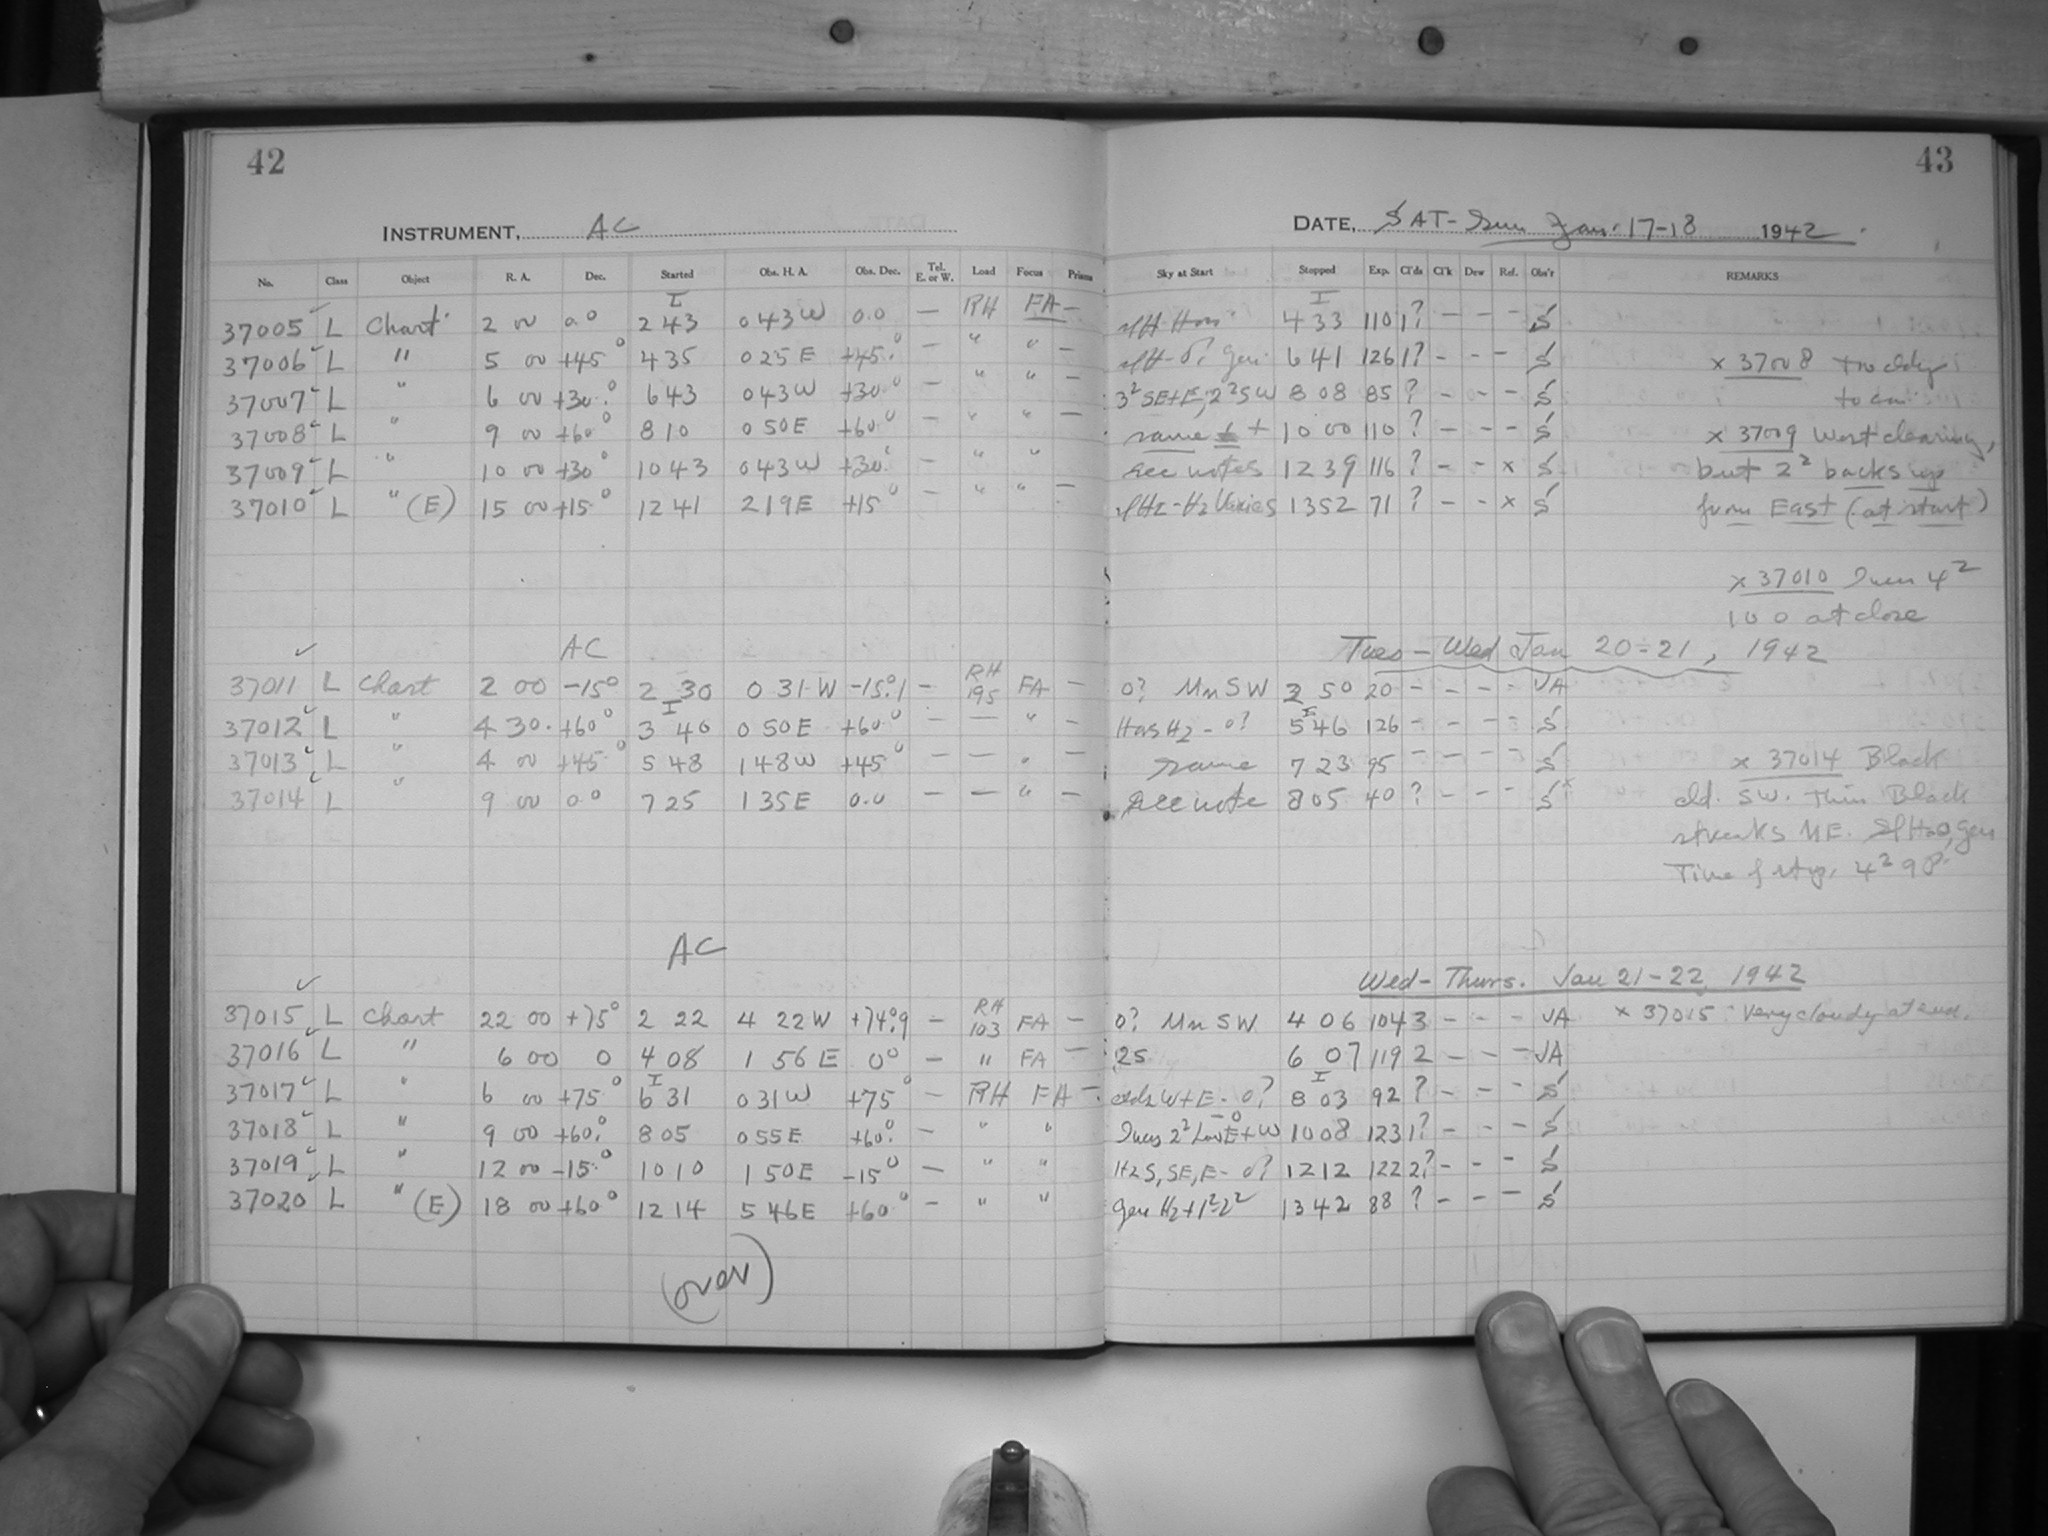 42
43
INSTRUMENT, AC
DATE, SAT-Sun Jan. 17-18 1942
No. Class Object R. A. Dec. Started Obs. H. A. Obs. Dec. Tel. E. or W. Load Focus Prisms Sky at Start Stopped Exp. Cl'ds Cl'k Dew Ref. Obs'r REMARKS
37005 L Chart 2 00 0.0 I 2 43 0 43 W 0.0 – RH FA – I 4 33 110 1? – – – S
37006 L " 5 00 +45° 4 35 0 25 E +45.° – " " – 6 41 126 1? – – – S × 37008 too cldy
37007 L " 6 00 +30.° 6 43 0 43 W +30.° – " " – 3² SE+E, 2² SW 8 08 85 ? – – – S
37008 L " 9 00 +60° 8 10 0 50 E +60° – " " – same + 10 00 110 ? – – – S × 37009 West clearing,
37009 L " 10 00 +30° 10 43 0 43 W +30.° – " " see notes 12 39 116 ? – – × S but 2² backs up
37010 L " (E) 15 00 +15° 12 41 2 19 E +15° – " " – H₂ Varies 13 52 71 ? – – × S from East (at start)
× 37010 4²
10 0 at close
AC
Tues – Wed Jan 20-21, 1942
37011 L Chart 2 00 -15° 2 30 0 31 W -15.°1 – RH 195 FA – 0? Mn SW 2 50 20 – – – – JA
37012 L " 4 30 +60° I 3 40 0 50 E +60.° – — " – Has H₂ - 0? I 5 46 126 – – – – S
37013 L " 4 00 +45° 5 48 1 48 W +45° – — " – same 7 23 95 – – – – S × 37014 Black
37014 L " 9 00 0.0 7 25 1 35 E 0.0 – — " – see note 8 05 40 ? – – – S× cld. SW. Thin Black
streaks NE.
Time of 4²
AC
Wed – Thurs. Jan 21-22 1942
37015 L Chart 22 00 +75° 2 22 4 22 W +74.°9 – RH 103 FA – 0? Mn SW 4 06 104 3 – – – JA × 37015 : Very cloudy at end.
37016 L " 6 00 0 4 08 1 56 E 0° – " FA – 25 6 07 119 2 – – – JA
37017 L " 6 00 +75° I 6 31 0 31 W +75° – RH FA – clds W+E - 0? I 8 03 92 ? – – – S
37018 L " 9 00 +60.° 8 05 0 55 E +60.° – " " 2² Low E+W 10 08 123 1? – – – S
37019 L " 12 00 -15.° 10 10 1 50 E -15° – " " H₂ S, SE, E - 0? 12 12 122 2? – – – S
37020 L " (E) 18 00 +60° 12 14 5 46 E +60° – " " gen H₂ + 1²-2² 13 42 88 ? – – – S
(over)